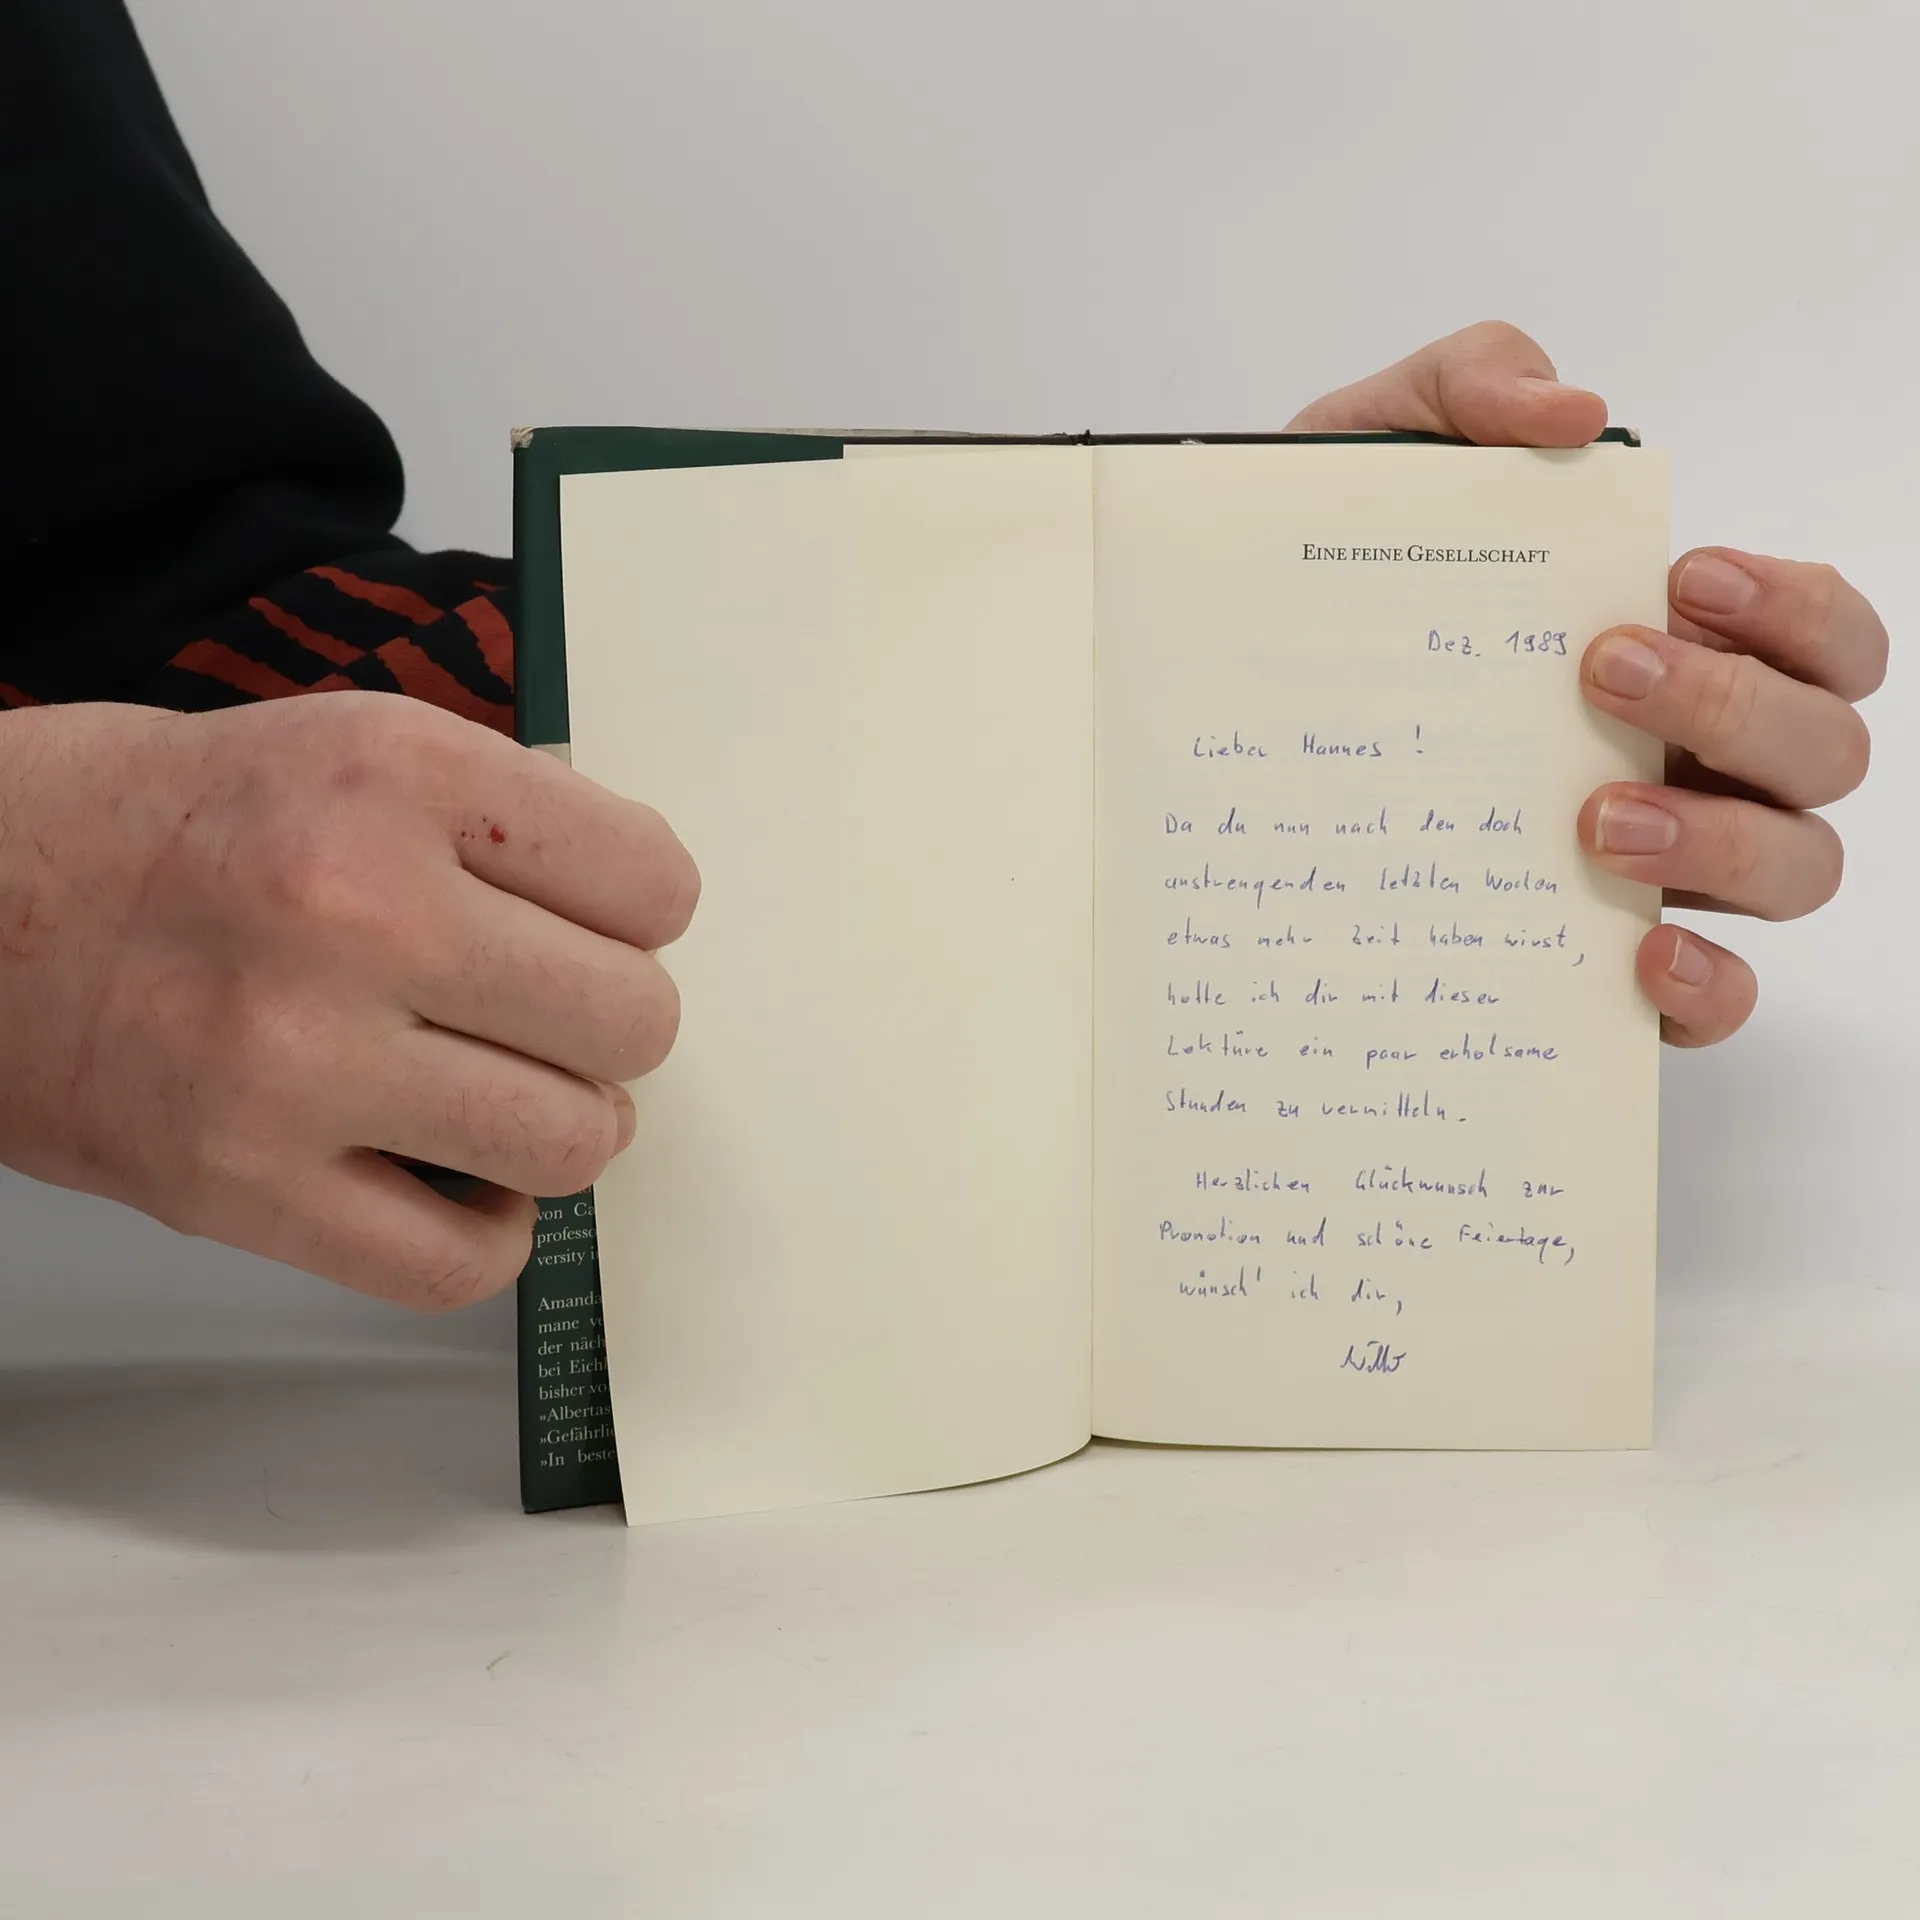 EINE FEINE GESELLSCHAFT
Dez. 1989
Lieber Hannes !
Da du nun nach den doch
anstrengenden letzten Wochen
etwas mehr Zeit haben wirst,
hoffe ich dir mit dieser
Lektüre ein paar erholsame
Stunden zu vermitteln.
Herzlichen Glückwunsch zur
Promotion und schöne Feiertage,
wünsch' ich dir,
von Ca
professo
versity i
Amanda
mane ve
der näch
bei Eich
bisher vo
»Albertas
»Gefährli
»In beste